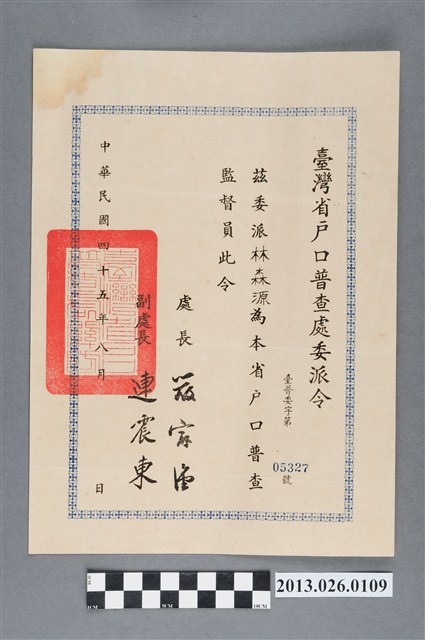 臺灣省戶口普查處委派令
臺普委字第
05327
號
茲委派林森源為本省戶口普查
監督員此令
處長
嚴家淦
副處長
連震東
中華民國四十五年八月 日
1CM
5CM
10CM
2013.026.0109